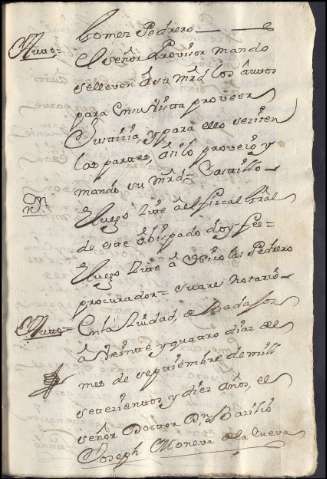 Gomez Pedrero
Auto= El señor Provisor mando
se lleven a su mrd los autos
para en su vista proveer
Justizia, y para ello se ziten
las partes, asi lo proveio y
mando su mrd= Castrillo=
N.
E luego zite al fiscal Gral
de este obispado doy fee=
E luego zite â Nicolas Pedrero
procurador= Suare Notario=
Auto= En la Ziudad de Badajoz
â veinte y quatro dias del
mes de septiembre de mill
setezientos y diez años, el
señor Doctor Dn Basilio
Joseph Moneva de la Cueva